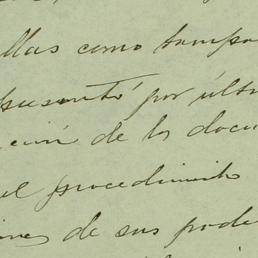 llas como tampo
presentó por últi
ación de los docu
el procedimiento
iones de sus pode